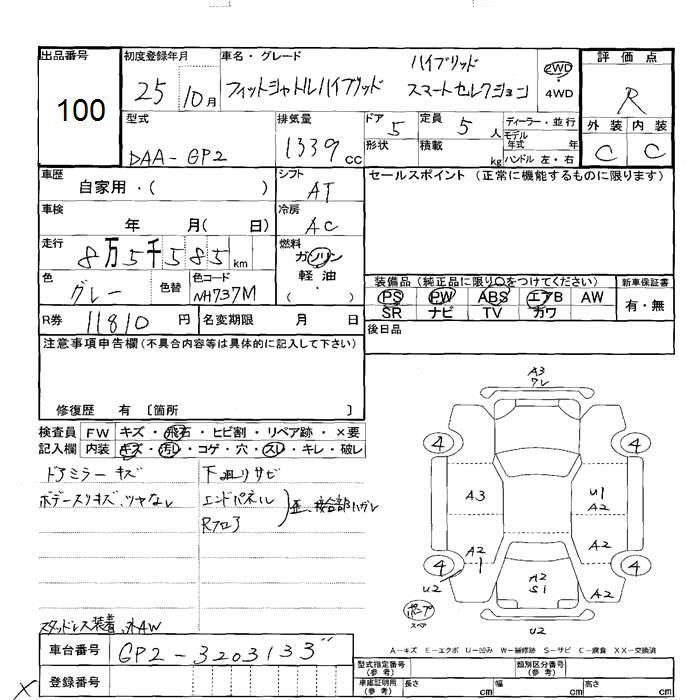 出品番号
100
初度登録年月
25 10月
車名・グレード
ハイブリッド
フィットシャトルハイブリッド スマートセレクション
2WD
・
4WD
評価点
R
外装 内装
C C
型式
DAA-GP2
排気量
1339 cc
ドア 5
定員 5 人
形状
積載 kg
ディーラー・並行
モデル
年式 年
ハンドル 左・右
車歴
自家用・( )
シフト
AT
セールスポイント (正常に機能するものに限ります)
車検
年 月( 日)
冷房
AC
走行
8万5千585km
燃料
ガソリン
軽油
・( )
色
グレー
色替
色コード
NH737M
装備品(純正品に限り○をつけてください)
PS PW ABS エアB AW
SR ナビ TV カワ
新車保証書
有・無
R券 11810 円
名変期限 月 日
後日品
注意事項申告欄(不具合内容等は具体的に記入して下さい)
修復歴 有 〔箇所 〕
検査員 FW キズ・飛石・ヒビ割・リペア跡・×要
記入欄 内装 キズ・汚レ・コゲ・穴・スレ・キレ・破レ
ドアミラーキズ
ボデースリキズ、ツヤなし
下廻りサビ
エンドパネル
Rフロア
歪、接合部ハガレ
スタッドレス装着、社外AW
A3
ワレ
4
4
A3
U1
A2
A2
1
A2
4
4
U2
A2
S1
A2
U2
スペア
A-キズ E-エクボ U-凹み W-補修跡 S-サビ C-腐食 XX-交換済
車台番号 GP2-3203133
登録番号
型式指定番号
(参考)
類別区分番号
(参考)
車庫証明用
(参考)
長さ cm
幅 cm
高さ cm
X